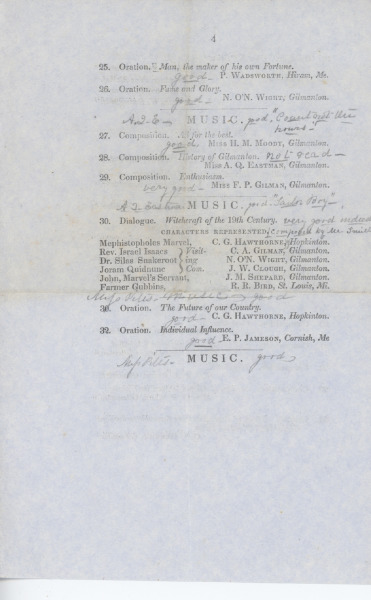 4
25. Oration. Man, the maker of his own Fortune.
good — P. WADSWORTH, Hiram, Me.
26. Oration. Fame and Glory.
good — N. O'N. WIGHT, Gilmanton.
MUSIC. good,
27. Composition. All for the best.
good MISS H. M. MOODY, Gilmanton.
28. Composition. History of Gilmanton. not read —
MISS A. Q. EASTMAN, Gilmanton.
29. Composition. Enthusiasm.
very good — MISS F. P. GILMAN, Gilmanton.
MUSIC. good
30. Dialogue. Witchcraft of the 19th Century. very good indeed
CHARACTERS REPRESENTED. (composed by Mr. Smith
Mephistopholes Marvel, C. G. HAWTHORNE, Hopkinton.
Rev. Israel Isaacs } Visit- C. A. GILMAN, Gilmanton.
Dr. Silas Snakeroot } ing N. O'N. WIGHT, Gilmanton.
Joram Quidnunc } Com. J. W. CLOUGH, Gilmanton.
John, Marvel's Servant, J. M. SHEPARD, Gilmanton.
Farmer Gubbins, R. R. BIRD, St. Louis, Mi.
Music — good
30. Oration. The Future of our Country.
good — C. G. HAWTHORNE, Hopkinton.
32. Oration. Individual Influence.
good E. P. JAMESON, Cornish, Me
MUSIC. good